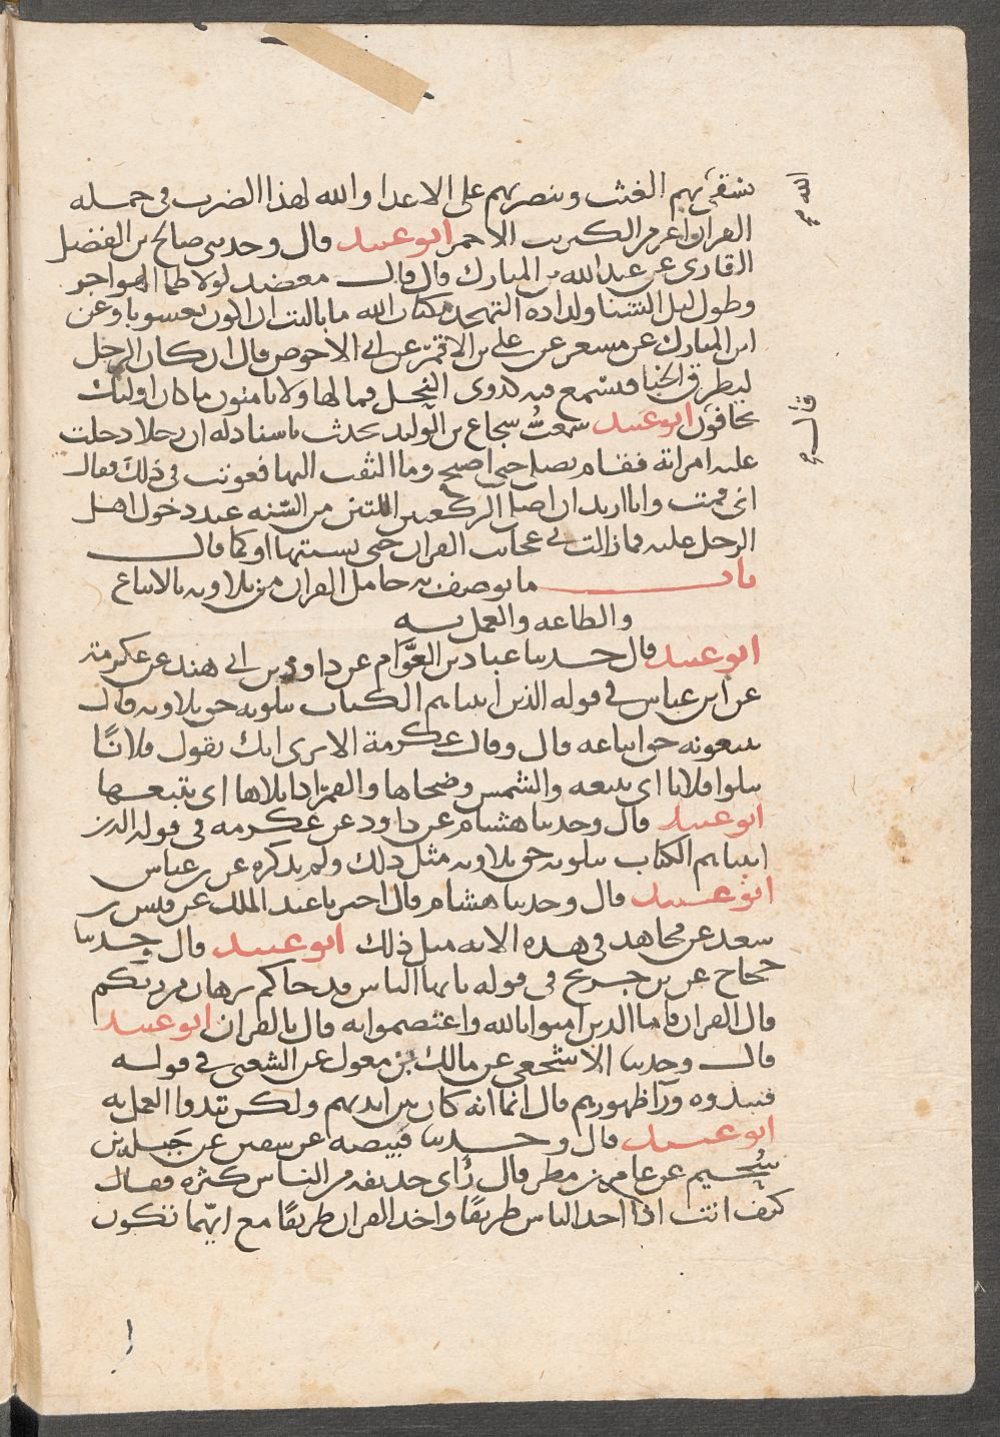 نسقى بهم الغيث وننصر بهم على الاعدا والله لهذا الضرب فى حملة
القران اعز من الكبريت الاحمر ابو عبيد قال وحدثنى صالح بن الفضل
القارى عن عبد الله بن المبارك قال قال معضد لولا ظما الهواجر
وطول ليل الشتا ولذاذة التهجد بكتاب الله ما باليت ان اكون يعسوبا وعن
ابن المبارك عن مسعر عن على بن الاقمر عن ابى الاحوص قال ان كان الرجل
ليطرق الخبا فسمع فيه كدوى النحل فما لهاولا يامنون ما كان اوليك
يخافون ابو عبيد سمعت شجاع بن الوليد يحدث باسناد له ان رجلا دخلت
عليه امراته فقام يصلى حتى اصبح وما التفت اليها فعوتب فى ذلك فقال
انى قمت وانا اريد ان اصلى الركعتين اللتين من السنه عند دخول اهل
الرجل عليه فما زالت بى عجايب القران حتى نسيتها او كما قال
باب ما يوصف به حامل القران من تلاوته بالاتباع
والطاعه والعمل به
ابو عبيد قال حدثنا عباد بن العوام عن داود بن ابى هند عن عكرمة
عن ابن عباس فى قوله الذين اتيناهم الكتاب يتلونه حق تلاوته قال
يتبعونه حق اتباعه قال وقال عكرمة الا ترى انك تقول فلانا
يتلوا فلانا اى يتبعه والشمس وضحاها والقمر اذا تلاها اى يتبعها
ابو عبيد قال وحدثنا هشام عن داود عن عكرمه فى قوله الذين
اتيناهم الكتاب يتلونه حق تلاوته مثل ذلك ولم يذكره عن بن عباس
ابو عبيد قال وحدثنا هشام قال اخبرنا عبد الملك عن قيس بن
سعد عن مجاهد فى هذه الايه مثل ذلك ابو عبيد قال وحدثنا
حجاج عن بن جريج فى قوله يا يها الناس قد جاكم برهان من ربكم
قال القران فاما الذين امنوا بالله واعتصموا به قال بالقران ابو عبيد
قال وحدثنا الاشجعى عن مالك بن مغول عن الشعبى فى قوله
فنبذوه ورآ ظهورهم قال انما انه كان بين ايديهم ولكن نبذوا العمل به
ابو عبيد قال وحدثنا قبيصه عن سفين عن جبلة بن
سحيم عن عامر بن مطر قال رأى حذيفه من الناس كثره فقال
كيف انت اذا اخذ الناس طريقا واخذ القران طريقا مع ايهما تكون